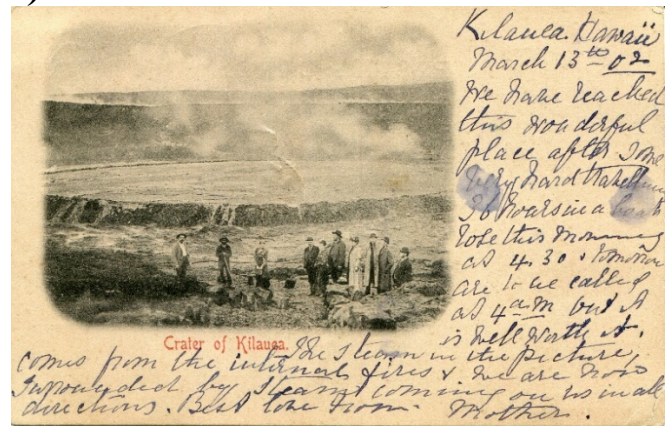 Kilauea. Hawaii
March 13th 02
We have reached
this wonderful
place after some
very hard travelling
36 hours in a boat
rose this morning
at 4.30 & tomorrow
are to be called
at 4 am but it
is well worth it.
Crater of Kilauea.
The steam in the picture,
comes from the internal fires & we are now
surrounded by steam coming on us in all
directions. Best love from Mother.